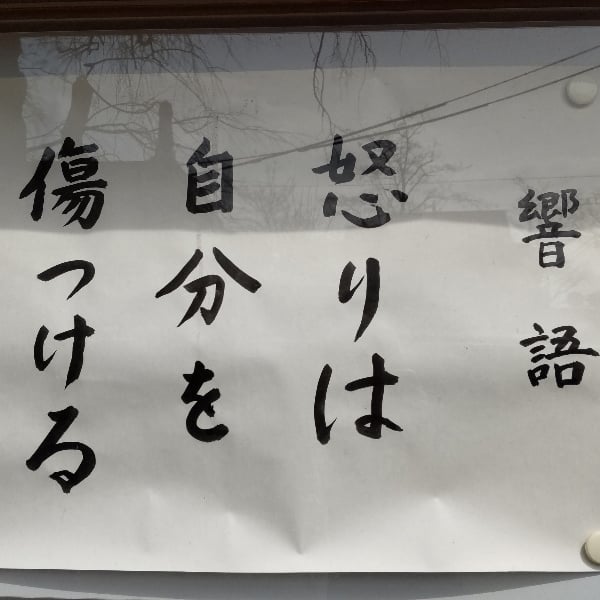 響語
怒りは
自分を
傷つける